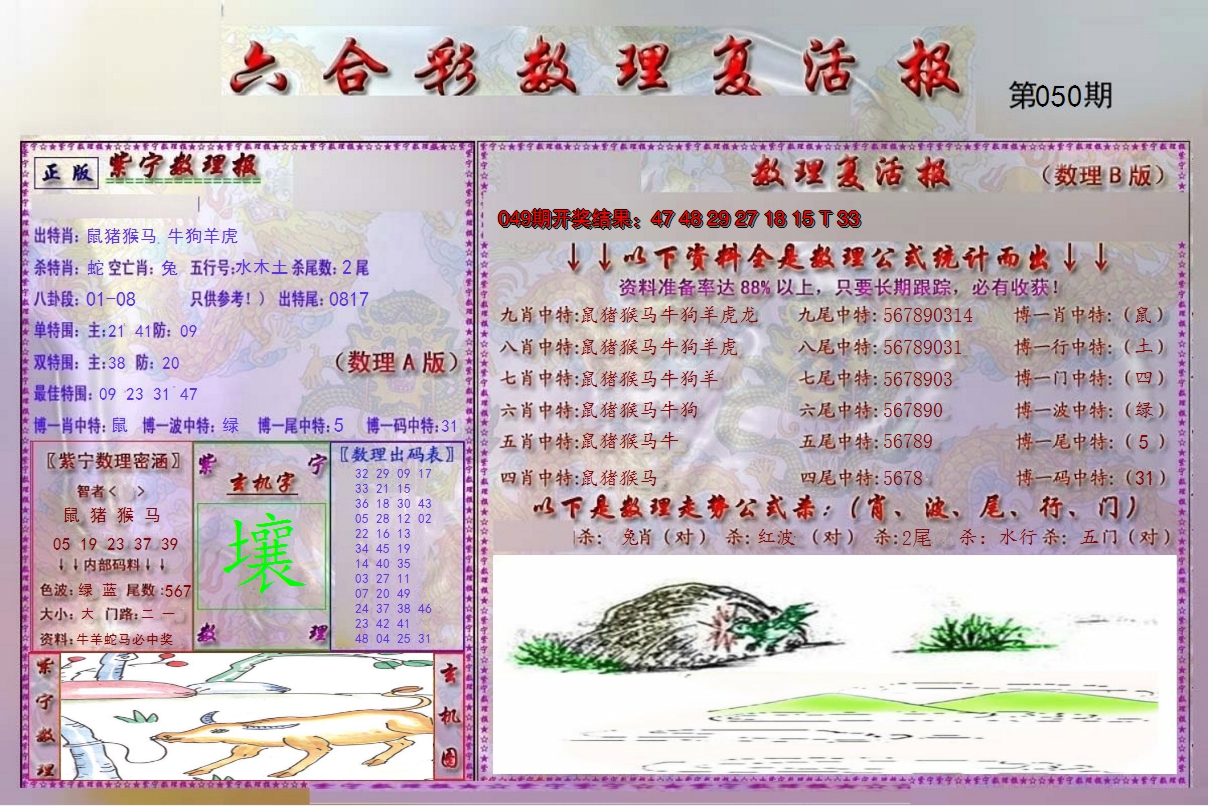 六合彩数理复活报
第050期
正版 紫宁数理报
出特肖: 鼠猪猴马 牛狗羊虎
杀特肖: 蛇 空亡肖: 兔 五行号:水木土 杀尾数: 2 尾
八卦段: 01-08 只供参考！） 出特尾: 0817
单特围: 主:21 41防: 09
双特围: 主:38 防: 20
（数理 A 版）
最佳特围: 09 23 31 47
博一肖中特: 鼠 博一波中特: 绿 博一尾中特: 5 博一码中特:31
〖紫宁数理密涵〗
智者< >
鼠 猪 猴 马
05 19 23 37 39
↓↓内部码料↓↓
色波: 绿 蓝 尾数:567
大小: 大 门路:二 一
资料:牛羊蛇马必中奖
紫 宁
玄机字
壤
数 理
〖数理出码表〗
32 29 09 17
33 21 15
36 18 30 43
05 28 12 02
22 16 13
34 45 19
14 40 35
03 27 11
07 20 49
24 37 38 46
23 42 41
48 04 25 31
紫宁数理
玄机图
数理复活报
（数理 B 版）
049期开奖结果：47 48 29 27 18 15 T 33
↓↓以下资料全是数理公式统计而出↓↓
资料准备率达 88% 以上，只要长期跟踪，必有收获！
九肖中特:鼠猪猴马牛狗羊虎龙 九尾中特: 567890314 博一肖中特:（鼠）
八肖中特:鼠猪猴马牛狗羊虎 八尾中特: 56789031 博一行中特:（土）
七肖中特:鼠猪猴马牛狗羊 七尾中特: 5678903 博一门中特:（四）
六肖中特:鼠猪猴马牛狗 六尾中特: 567890 博一波中特:（绿）
五肖中特:鼠猪猴马牛 五尾中特: 56789 博一尾中特:（5）
四肖中特:鼠猪猴马 四尾中特: 5678 博一码中特:（31）
以下是数理走势公式杀：（肖、波、尾、行、门）
杀: 兔肖（对） 杀: 红波（对） 杀:2尾 杀: 水行 杀: 五门（对）